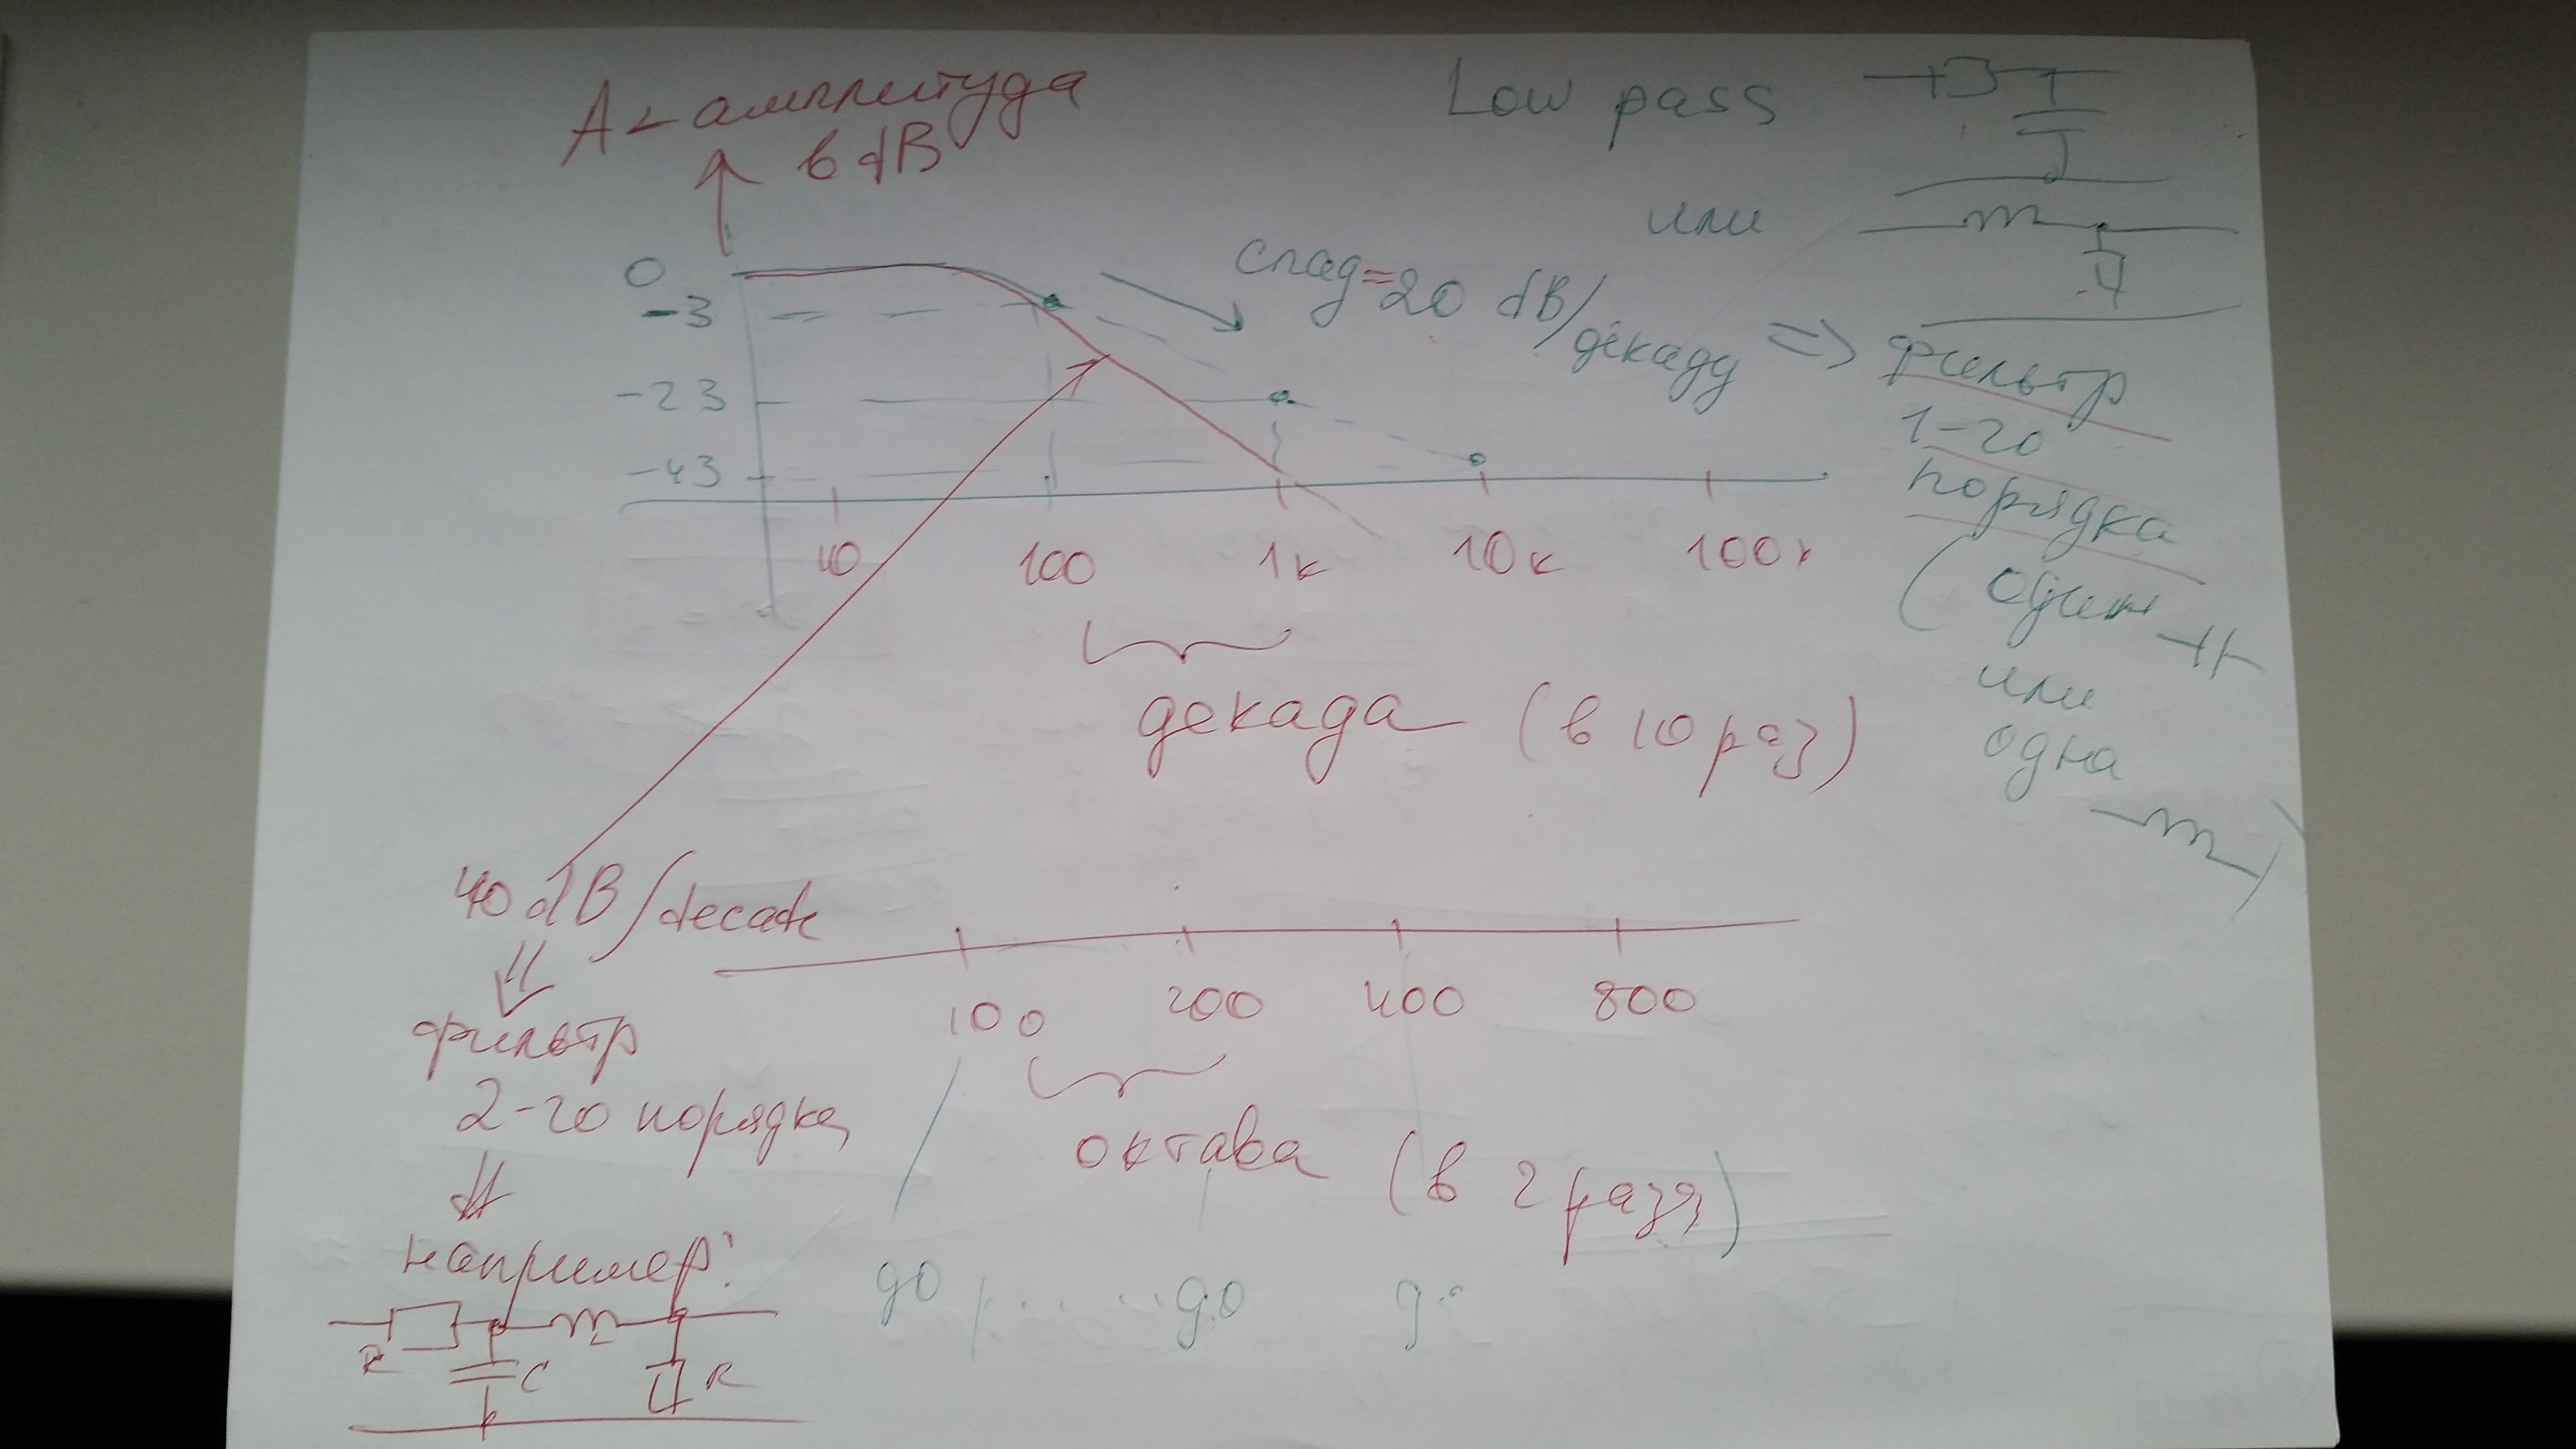 А - амплитуда
в dB
Low pass
или
0
-3
-23
-43
спад = 20 dB/декаду => фильтр
1-го
порядка
(один
или
одна
)
10 100 1к 10к 100к
декада (в 10 раз)
40 dB/decade
фильтр
2-го порядка
например:
R C R
100 200 400 800
октава (в 2 раза)
до ..... до до